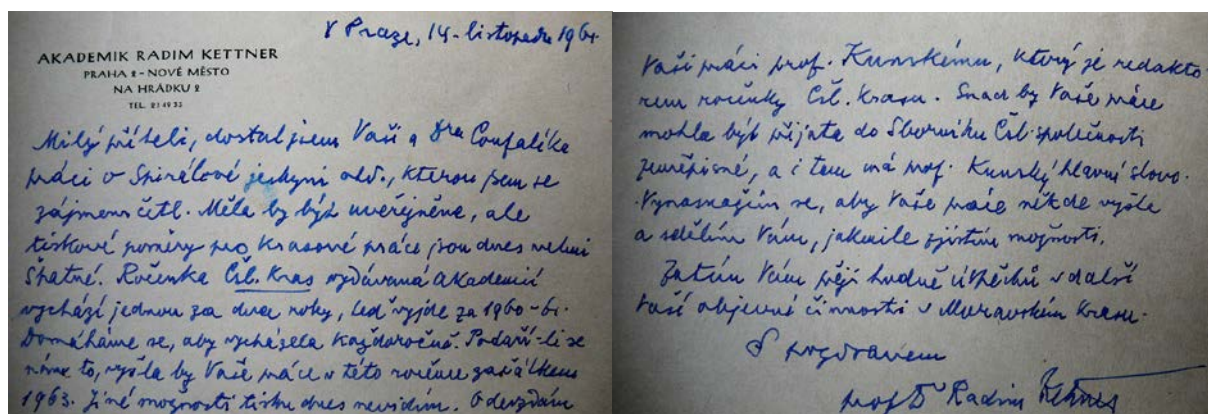 V Praze, 14. listopadu 1961.
AKADEMIK RADIM KETTNER
PRAHA 2 - NOVÉ MĚSTO
NA HRÁDKU 2
TEL. 23 49 33
Milý příteli, dostal jsem Vaši a Dra Coufalíka
práci o Spirálové jeskyni atd., kterou jsem se
zájmem četl. Měla by být uveřejněna, ale
tiskové poměry pro krasové práce jsou dnes velmi
špatné. Ročenka Čsl. Kras vydávaná Akademií
vychází jednou za dva roky, teď vyjde za 1960-61.
Domáháme se, aby vycházela každoročně. Podaří-li se
nám to, vyšla by Vaše práce v této ročence začátkem
1963. Jiné možnosti tisku dnes nevidím. Odevzdám
Vaši práci prof. Kunskému, který je redakto-
rem ročenky Čsl. Krasu. Snad by Vaše práce
mohla být přijata do Sborníku Čsl. společnosti
zeměpisné, a i tam má prof. Kunský hlavní slovo.
Vynasnažím se, aby Vaše práce někde vyšla
a sdělím Vám, jakmile zjistím možnosti.
Zatím Vám přeji hodně úspěchů v další
Vaší objevné činnosti v Moravském Krasu.
S pozdravem
prof. Dr Radim Kettner